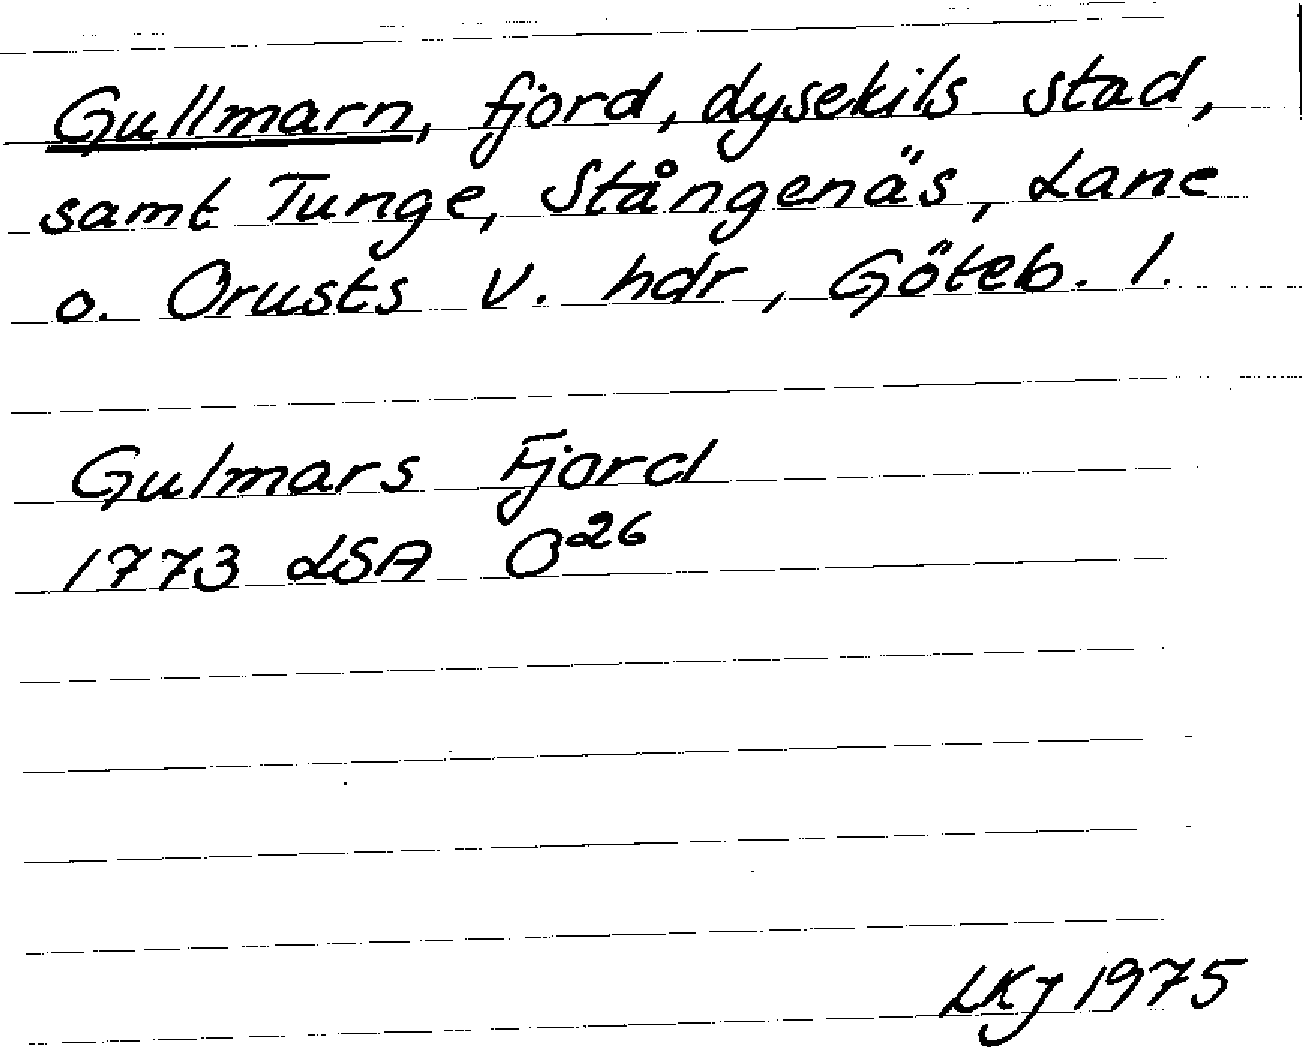 Gullmarn, fjord, Lysekils stad,
samt Tunge, Stångenäs, Lane
o. Orusts v. hdr, Göteb. l.
Gulmars Fjord
1773 LSA O26
LKJ 1975